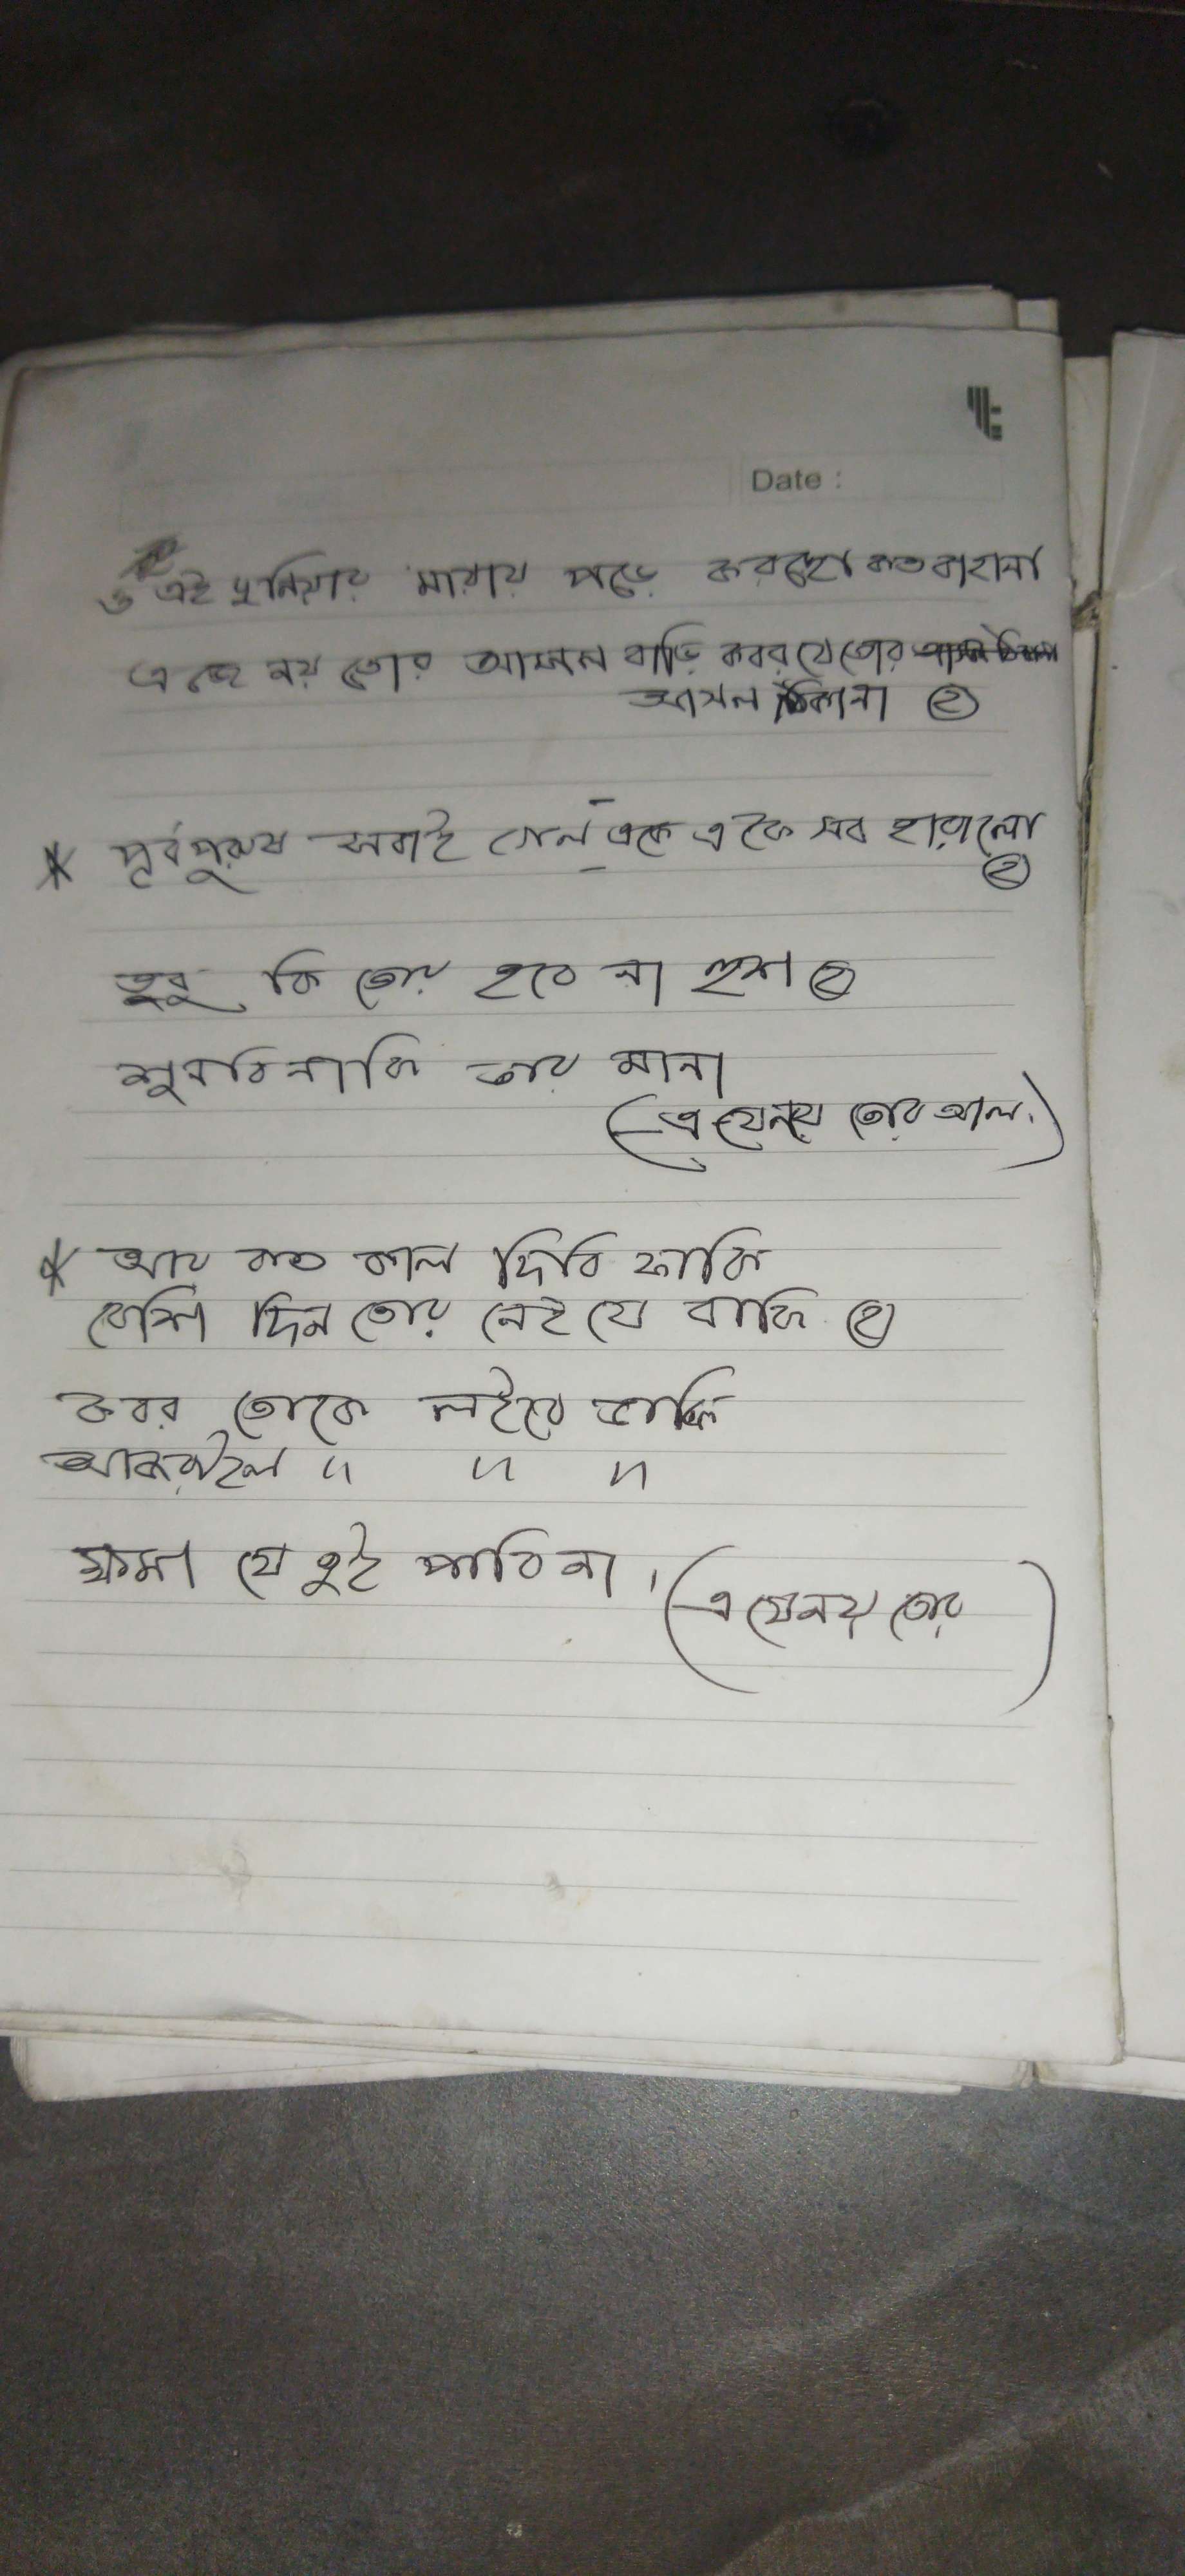 Date :
ও এই দুনিয়ার মায়ায় পড়ে করছো কত বাহানা
এ যে নয় তোর আসল বাড়ি কবর যে তোর
আসল ঠিকানা ②
* পূর্বপুরুষ সবাই গেল একে একে সব হারালো
②
তবু কি তোর হবে না হুশ ②
শুনবি না কি তার মানা
(এ যে নয় তোর আস.)
* আর কত কাল দিবি ফাকি
বেশি দিন তোর নেই যে বাকি ②
কবর তোকে লইবে ডাকি
আজরাইল " " "
ক্ষমা যে তুই পাবি না। (এ যে নয় তোর)